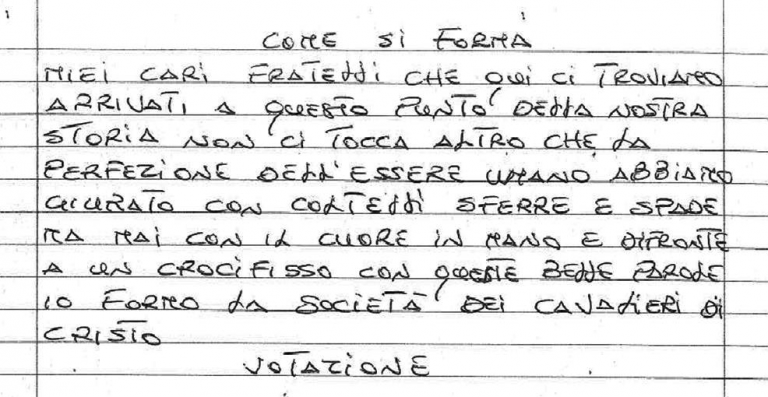 COME SI FORMA
MIEI CARI FRATELLI CHE QUI CI TROVIAMO
ARRIVATI A QUESTO PUNTO DELLA NOSTRA
STORIA NON CI TOCCA ALTRO CHE LA
PERFEZIONE DELL'ESSERE UMANO ABBIAMO
GIURATO CON COLTELLI SFERRE E SPADE
MA MAI CON IL CUORE IN MANO E DIFRONTE
A UN CROCIFISSO CON QUESTE BELLE PAROLE
IO FORMO LA SOCIETÀ DEI CAVALIERI DI
CRISTO
VOTAZIONE